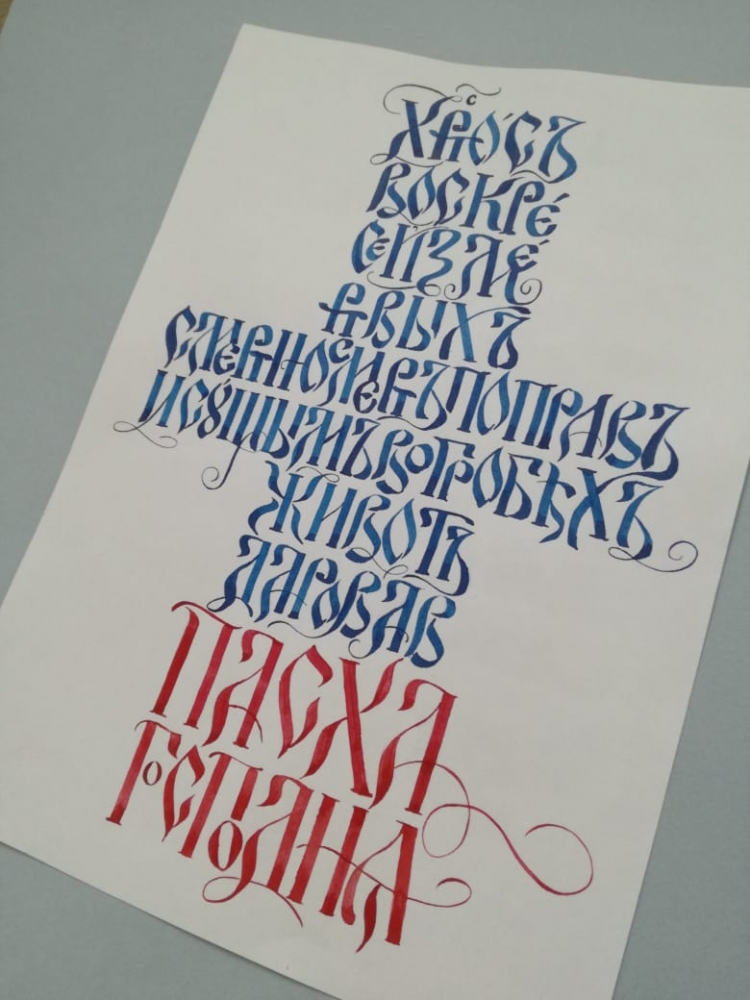 ХРⷭ҇ТО́СЪ
ВОСКРЕ́
СЕ ИЗ МЕ́
РТВЫХЪ
СМЕРТИЮ СМЕРТЪ ПОПРАВЪ
И СꙊЩЫМЪ ВО ГРОБѢХЪ
ЖИВОТЪ
ДАРОВАВ
ПАСХА
ГОСПОДНѦ